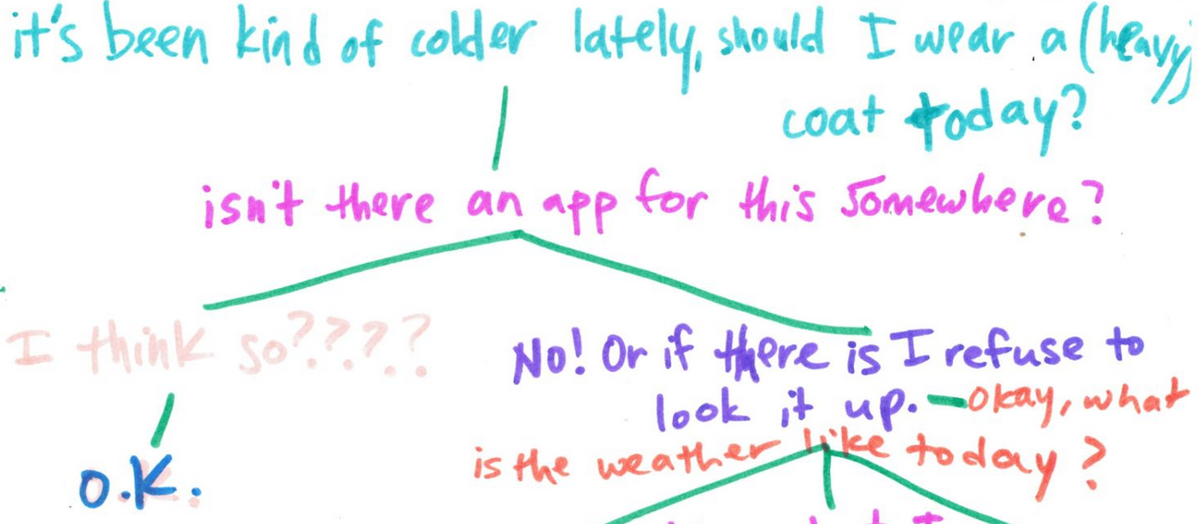 it's been kind of colder lately, should I wear a (heavy)
coat today?
isn't there an app for this somewhere?
I think so????
No! Or if there is I refuse to
look it up. — okay, what
is the weather like today?
O.K.